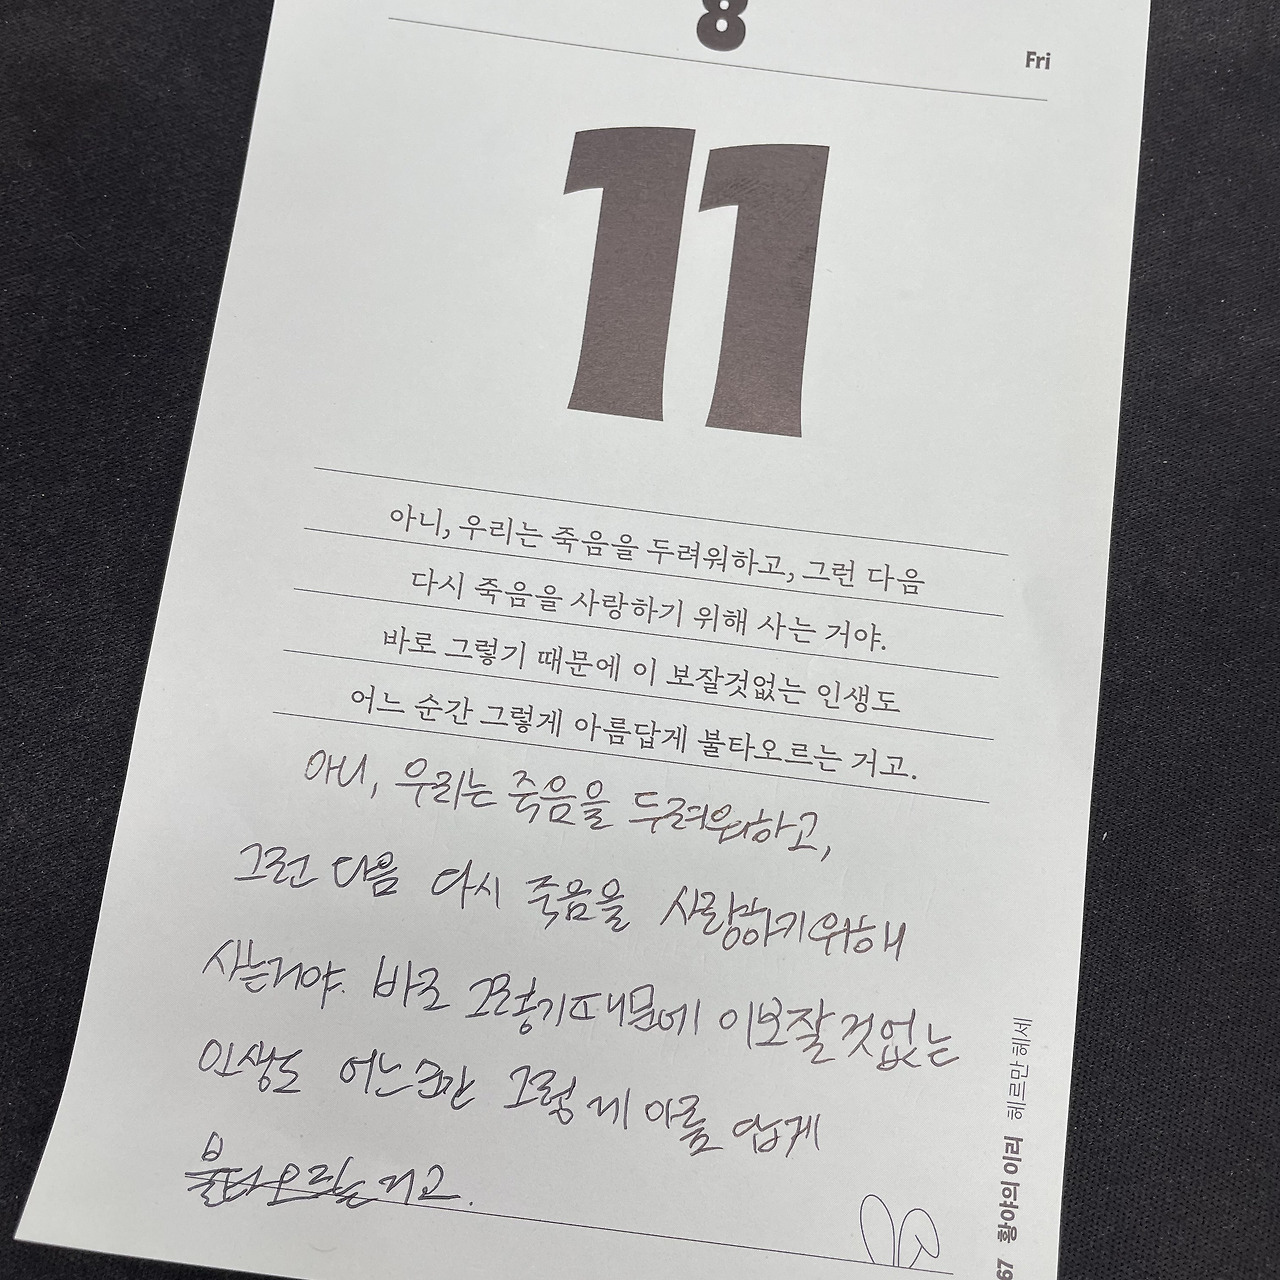 8
Fri
11
아니, 우리는 죽음을 두려워하고, 그런 다음
다시 죽음을 사랑하기 위해 사는 거야.
바로 그렇기 때문에 이 보잘것없는 인생도
어느 순간 그렇게 아름답게 불타오르는 거고.
아니, 우리는 죽음을 두려워하고,
그런 다음 다시 죽음을 사랑하기 위해
사는거야. 바로 그렇기 때문에 이 보잘것없는
인생도 어느 순간 그렇게 아름답게
불타오르는 거고.
67 황야의 이리 헤르만 헤세